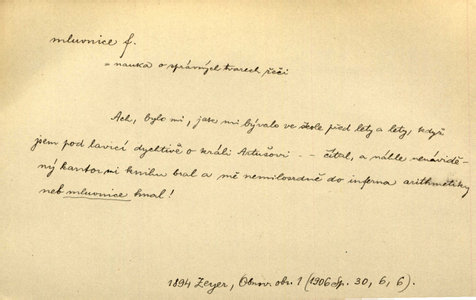 mluvnice f.
= nauka o správných tvarech řeči
Ach, bylo mi, jak mi bývalo ve škole před lety a lety, když
jsem pod lavicí dychtivě o králi Artušovi -- čítal, a náhle nenávidě-
ný kantor mi knihu bral a mě nemilosrdně do inferna arithmetiky
neb mluvnice hnal!
1894 Zeyer, Obnov. obr. 1 (1906 Sp. 30, 6, 6).